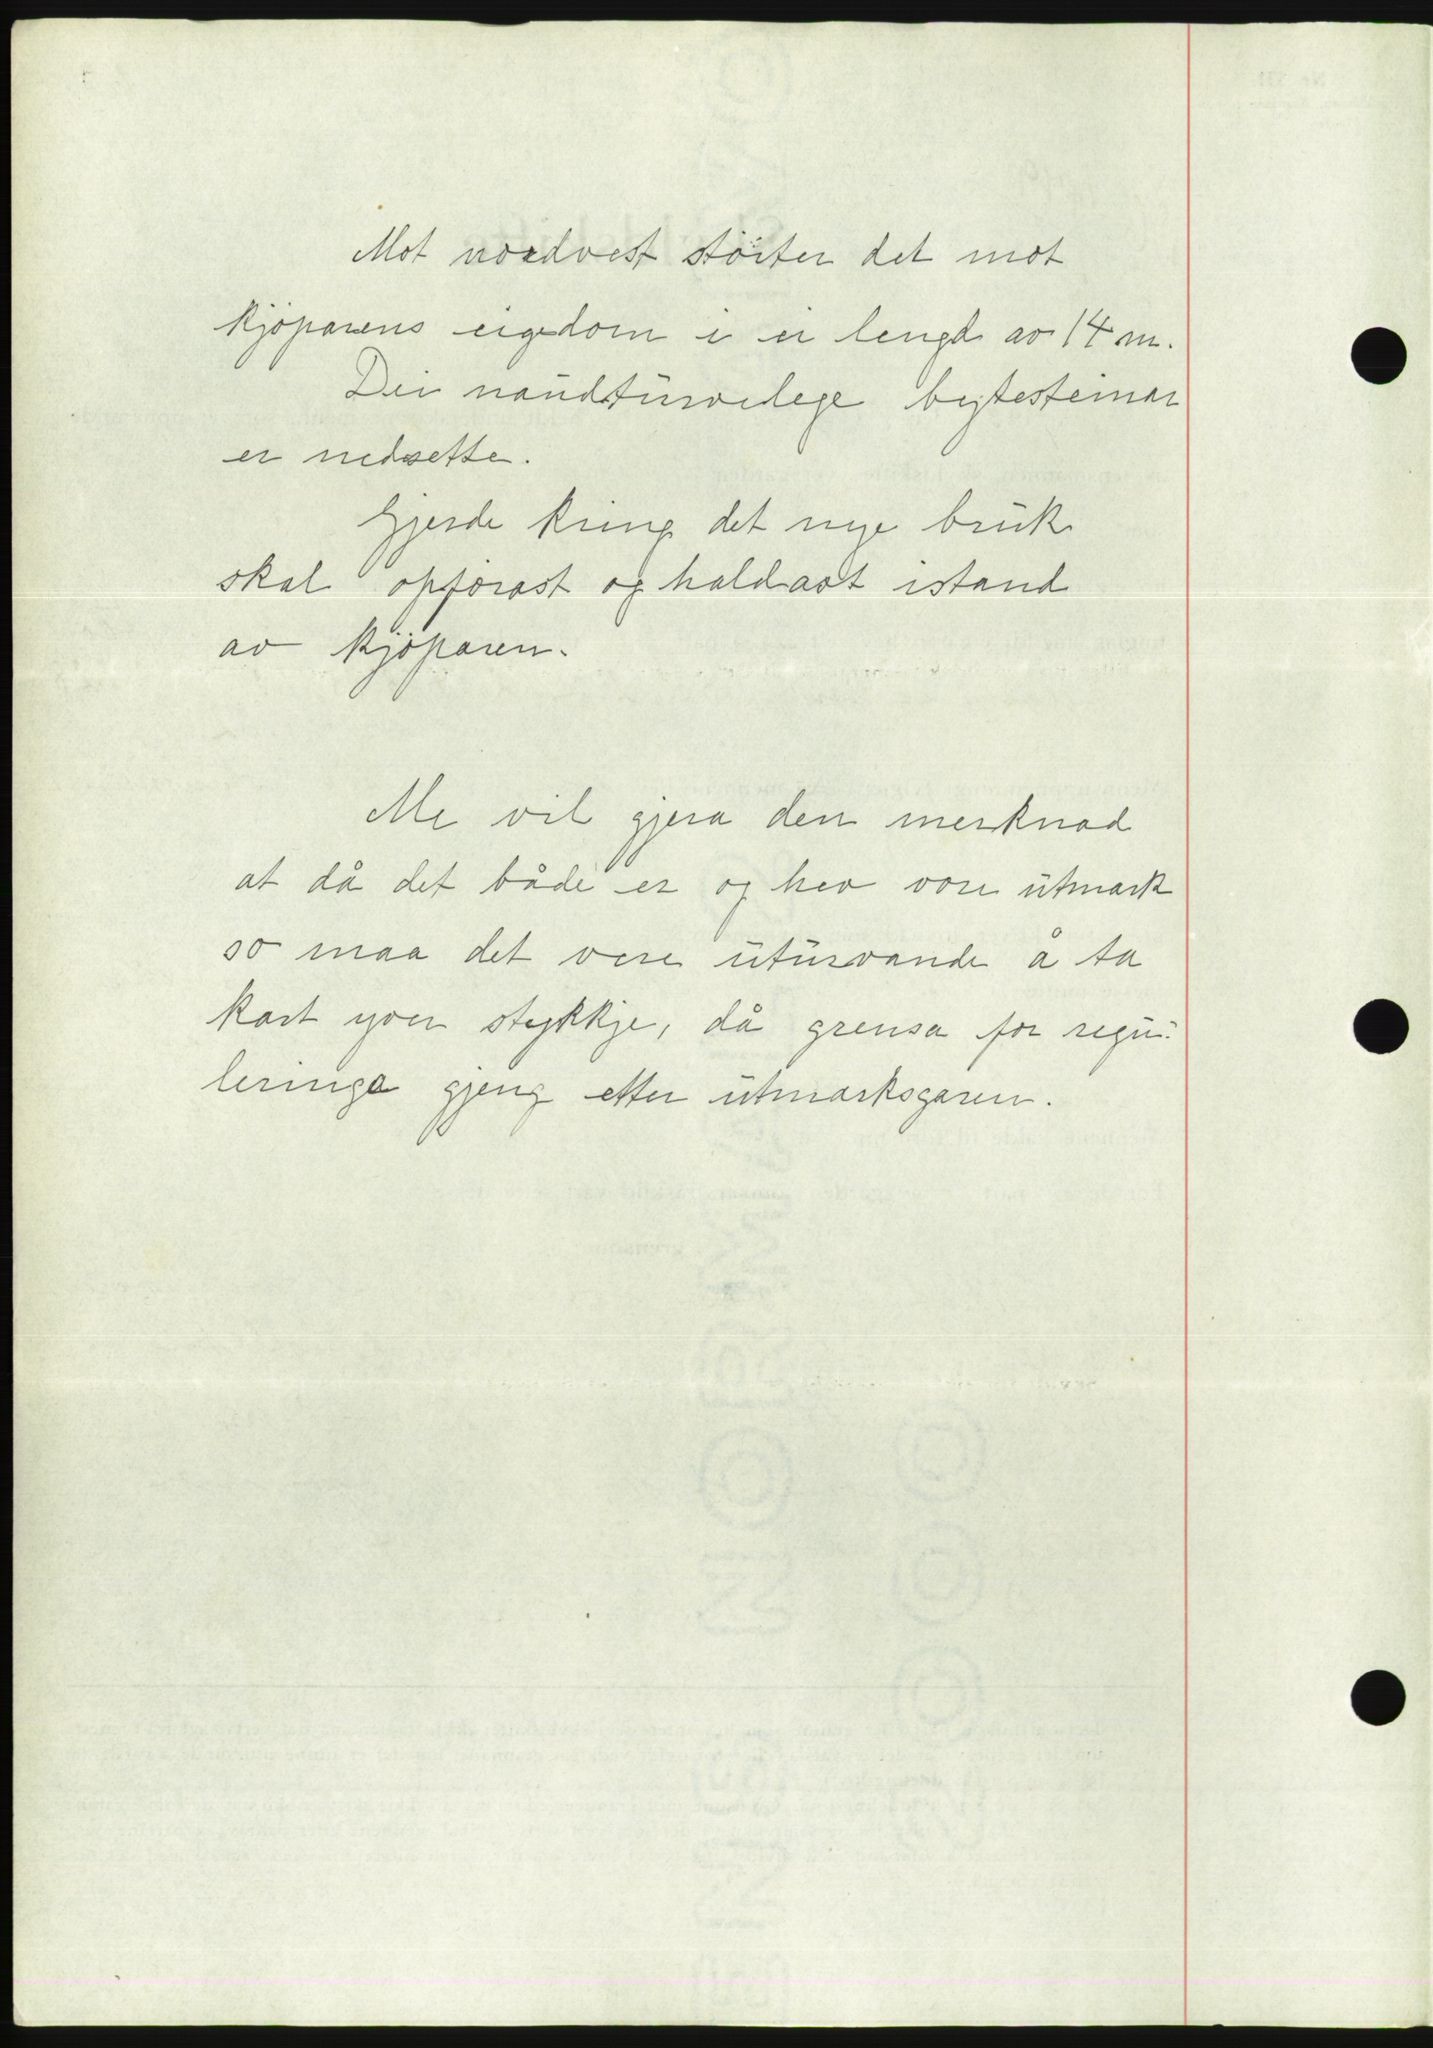 Mot nordvest störter det mot
kjöparens eigedom i ei lengd av 14 m.
Dei naudturvelege bytesteinar
er nedsette.
Gjerde kring det nye bruk
skal opförast og haldast istand
av kjöparen.
Me vil gjera den merknad
at då det både er og hev vore utmark
so maa det vere uturvande å ta
kart yver stykkje, då grensa for regu-
leringa gjeng etter utmarksgaren.